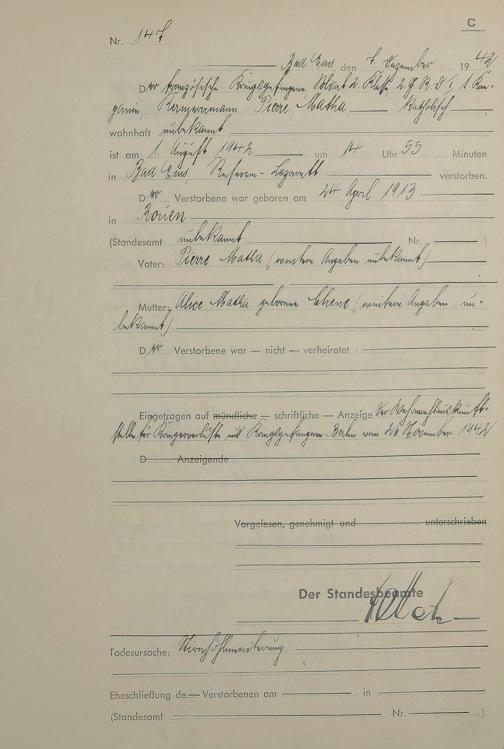 C
Nr. 147
Bad Ems, den 7. Dezember 1942
Der französische Kriegsgefangene Soldat 2. Klasse 1. Kom-
panie, Zimmermann Pierre Matha, katholisch
wohnhaft unbekannt
ist am 1. August 1942 um 14 Uhr 55 Minuten
in Bad Ems, Reserve-Lazarett verstorben.
Der Verstorbene war geboren am 24. April 1913
in Rouen
(Standesamt unbekannt Nr. )
Vater: Pierre Matha (weitere Angaben unbekannt)
Mutter: Alice Matha geborene (weitere Angaben un-
bekannt)
Der Verstorbene war — nicht — verheiratet
Eingetragen auf mündliche — schriftliche — Anzeige der Wehrmachtauskunft-
stelle für Kriegerverluste und Kriegsgefangene Berlin vom 26. November 1942
D Anzeigende
Vorgelesen, genehmigt und unterschrieben
Der Standesbeamte
Todesursache: Stirnhöhlenvereiterung
Eheschließung de Verstorbenen am in
(Standesamt Nr. ).